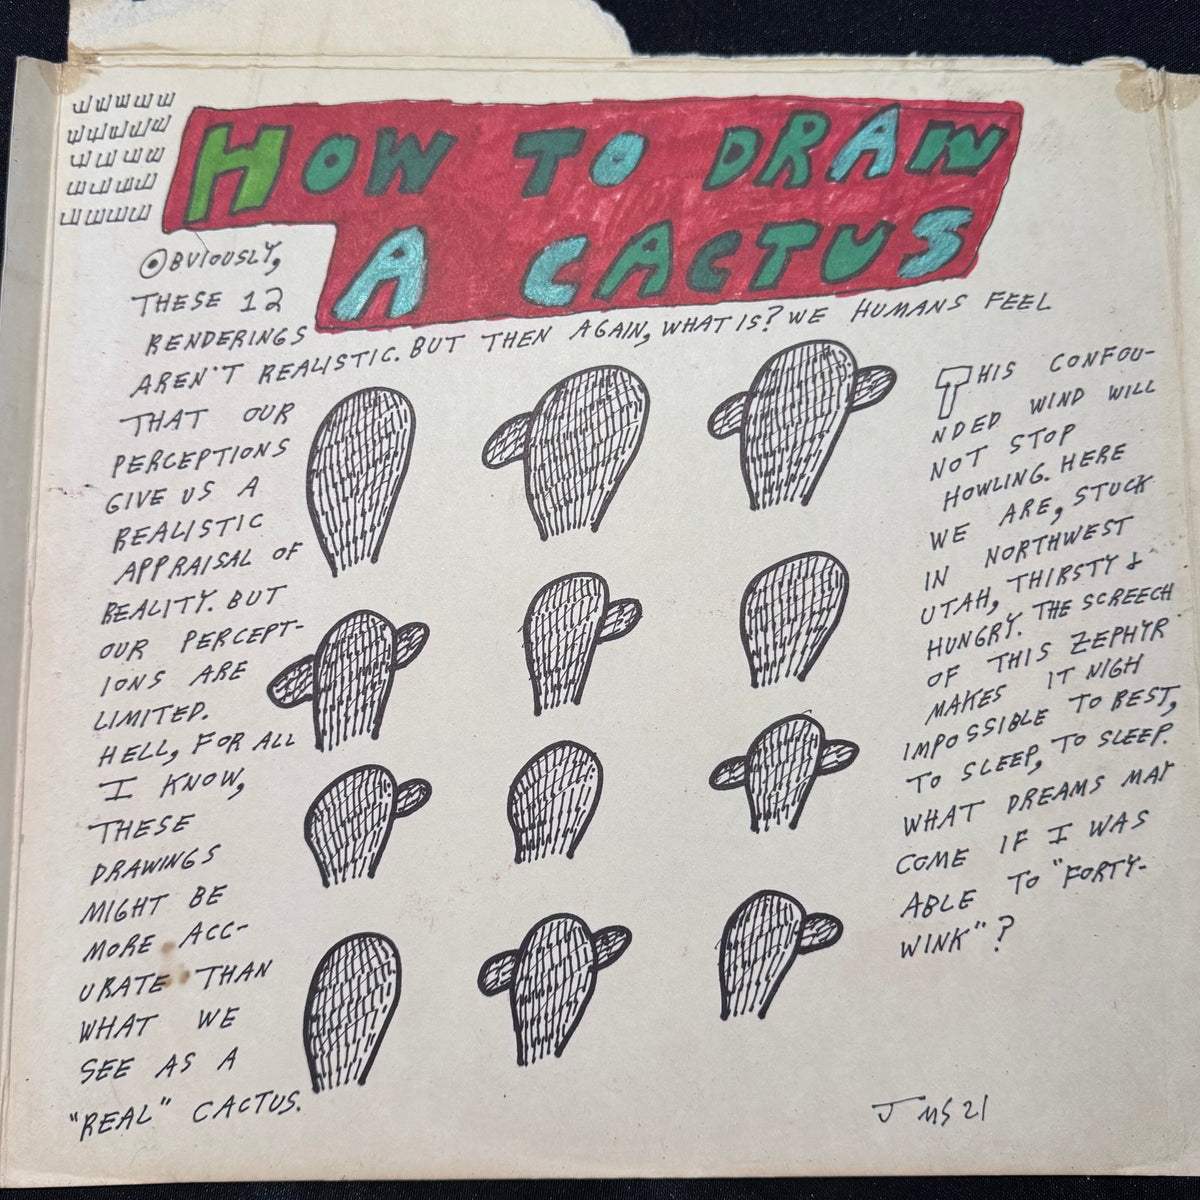 HOW TO DRAW
A CACTUS
OBVIOUSLY,
THESE 12
RENDERINGS
AREN'T REALISTIC. BUT THEN AGAIN, WHAT IS? WE HUMANS FEEL
THAT OUR
PERCEPTIONS
GIVE US A
REALISTIC
APPRAISAL OF
REALITY. BUT
OUR PERCEPT-
IONS ARE
LIMITED.
HELL, FOR ALL
I KNOW,
THESE
DRAWINGS
MIGHT BE
MORE ACC-
URATE THAN
WHAT WE
SEE AS A
"REAL" CACTUS.
THIS CONFOU-
NDED WIND WILL
NOT STOP
HOWLING. HERE
WE ARE, STUCK
IN NORTHWEST
UTAH, THIRSTY &
HUNGRY. THE SCREECH
OF THIS ZEPHYR
MAKES IT NIGH
IMPOSSIBLE TO REST,
TO SLEEP, TO SLEEP.
WHAT DREAMS MAY
COME IF I WAS
ABLE TO "FORTY-
WINK"?
J MS 21